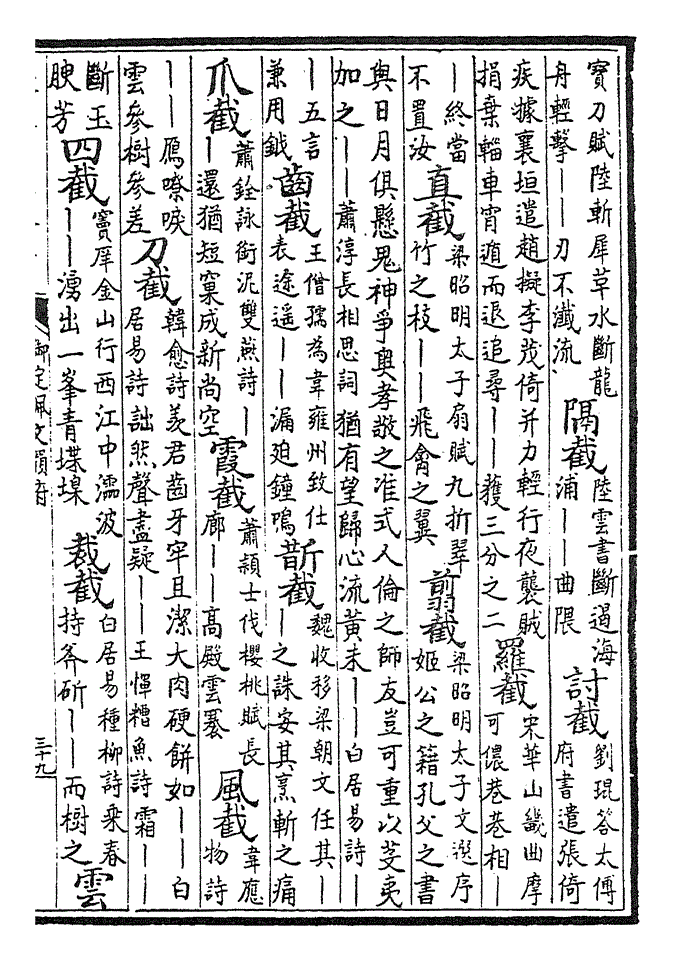 寶刀賦陸斬犀草水斷龍舟輕擊——刃不瀸流 隔截 陸雲書斷遏海浦——曲隈 討截 劉琨答太傅府書遣張倚
疾據襄垣遣趙擬李茂倚并力輕行夜襲賊捐棄輜車宵遁而退追尋——獲三分之二 羅截 宋華山畿曲摩可儂巷巷相—
—終當不置汝 直截 梁昭明太子扇賦九折翠竹之枝——飛禽之翼 翦截 梁昭明太子文選序姬公之籍孔父之書
與日月俱懸鬼神爭奧孝敬之准式人倫之師友豈可重以芟夷加之——蕭淳長相思詞猶有望歸心流黃未——白居易詩—
—五言兼用鉞 齒截 王僧孺為韋雍州致仕表途遥——漏廹鐘鳴 斮截 魏收移梁朝文任其——之誅安其烹斬之痛
爪截 蕭銓詠銜泥雙燕詩——還猶短窠成新尚空 霞截 蕭穎士伐櫻桃賦長廊——高殿雲褰 風截 韋應物詩
——鴈嘹唳雲參樹參差 刀截 韓愈詩羨君齒牙牢且潔大肉硬餅如——白居易詩詘然聲盡疑——王惲糟魚詩霜——
斷玉腴芳 四截 竇庠金山行西江中濡波——湧出一峯青堞㙞 裁截 白居易種柳詩乘春持斧斫——而樹之 雲
御定佩文韻府
三十九